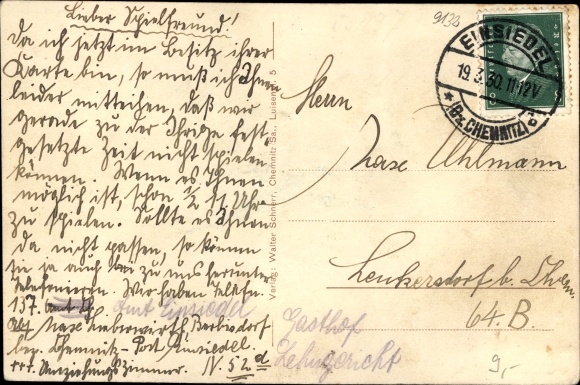 Lieber Spielfreund!
Da ich jetzt im Besitz ihrer
Karte bin, so muß ich Ihnen
leider mitteilen, daß wir
gerade zu der Ihrige fest-
gesetzte Zeit nicht spielen
können. Wenn es Ihnen
möglich ist, schon 1/2 11 Uhr
zu spielen. Sollte es Ihnen
da nicht passen, so können
sie ja auch bei zu uns herunter
telefonieren. Wir haben Telefn.
137. Amt Einsiedel
Berbisdorf
bez. Chemnitz-Post Einsiedel.
Umziehungszimmer. N. 52 d
Verlag: Walter Schnerr, Chemnitz Sa., Luisenstr. 5
9133
EINSIEDEL
19.3.30.11-12V
* (Bz. CHEMNITZ) c
8
Herrn
Uhlmann
Leukersdorf b. Chem.
64. B.
Gasthof
Lehngericht
9,-